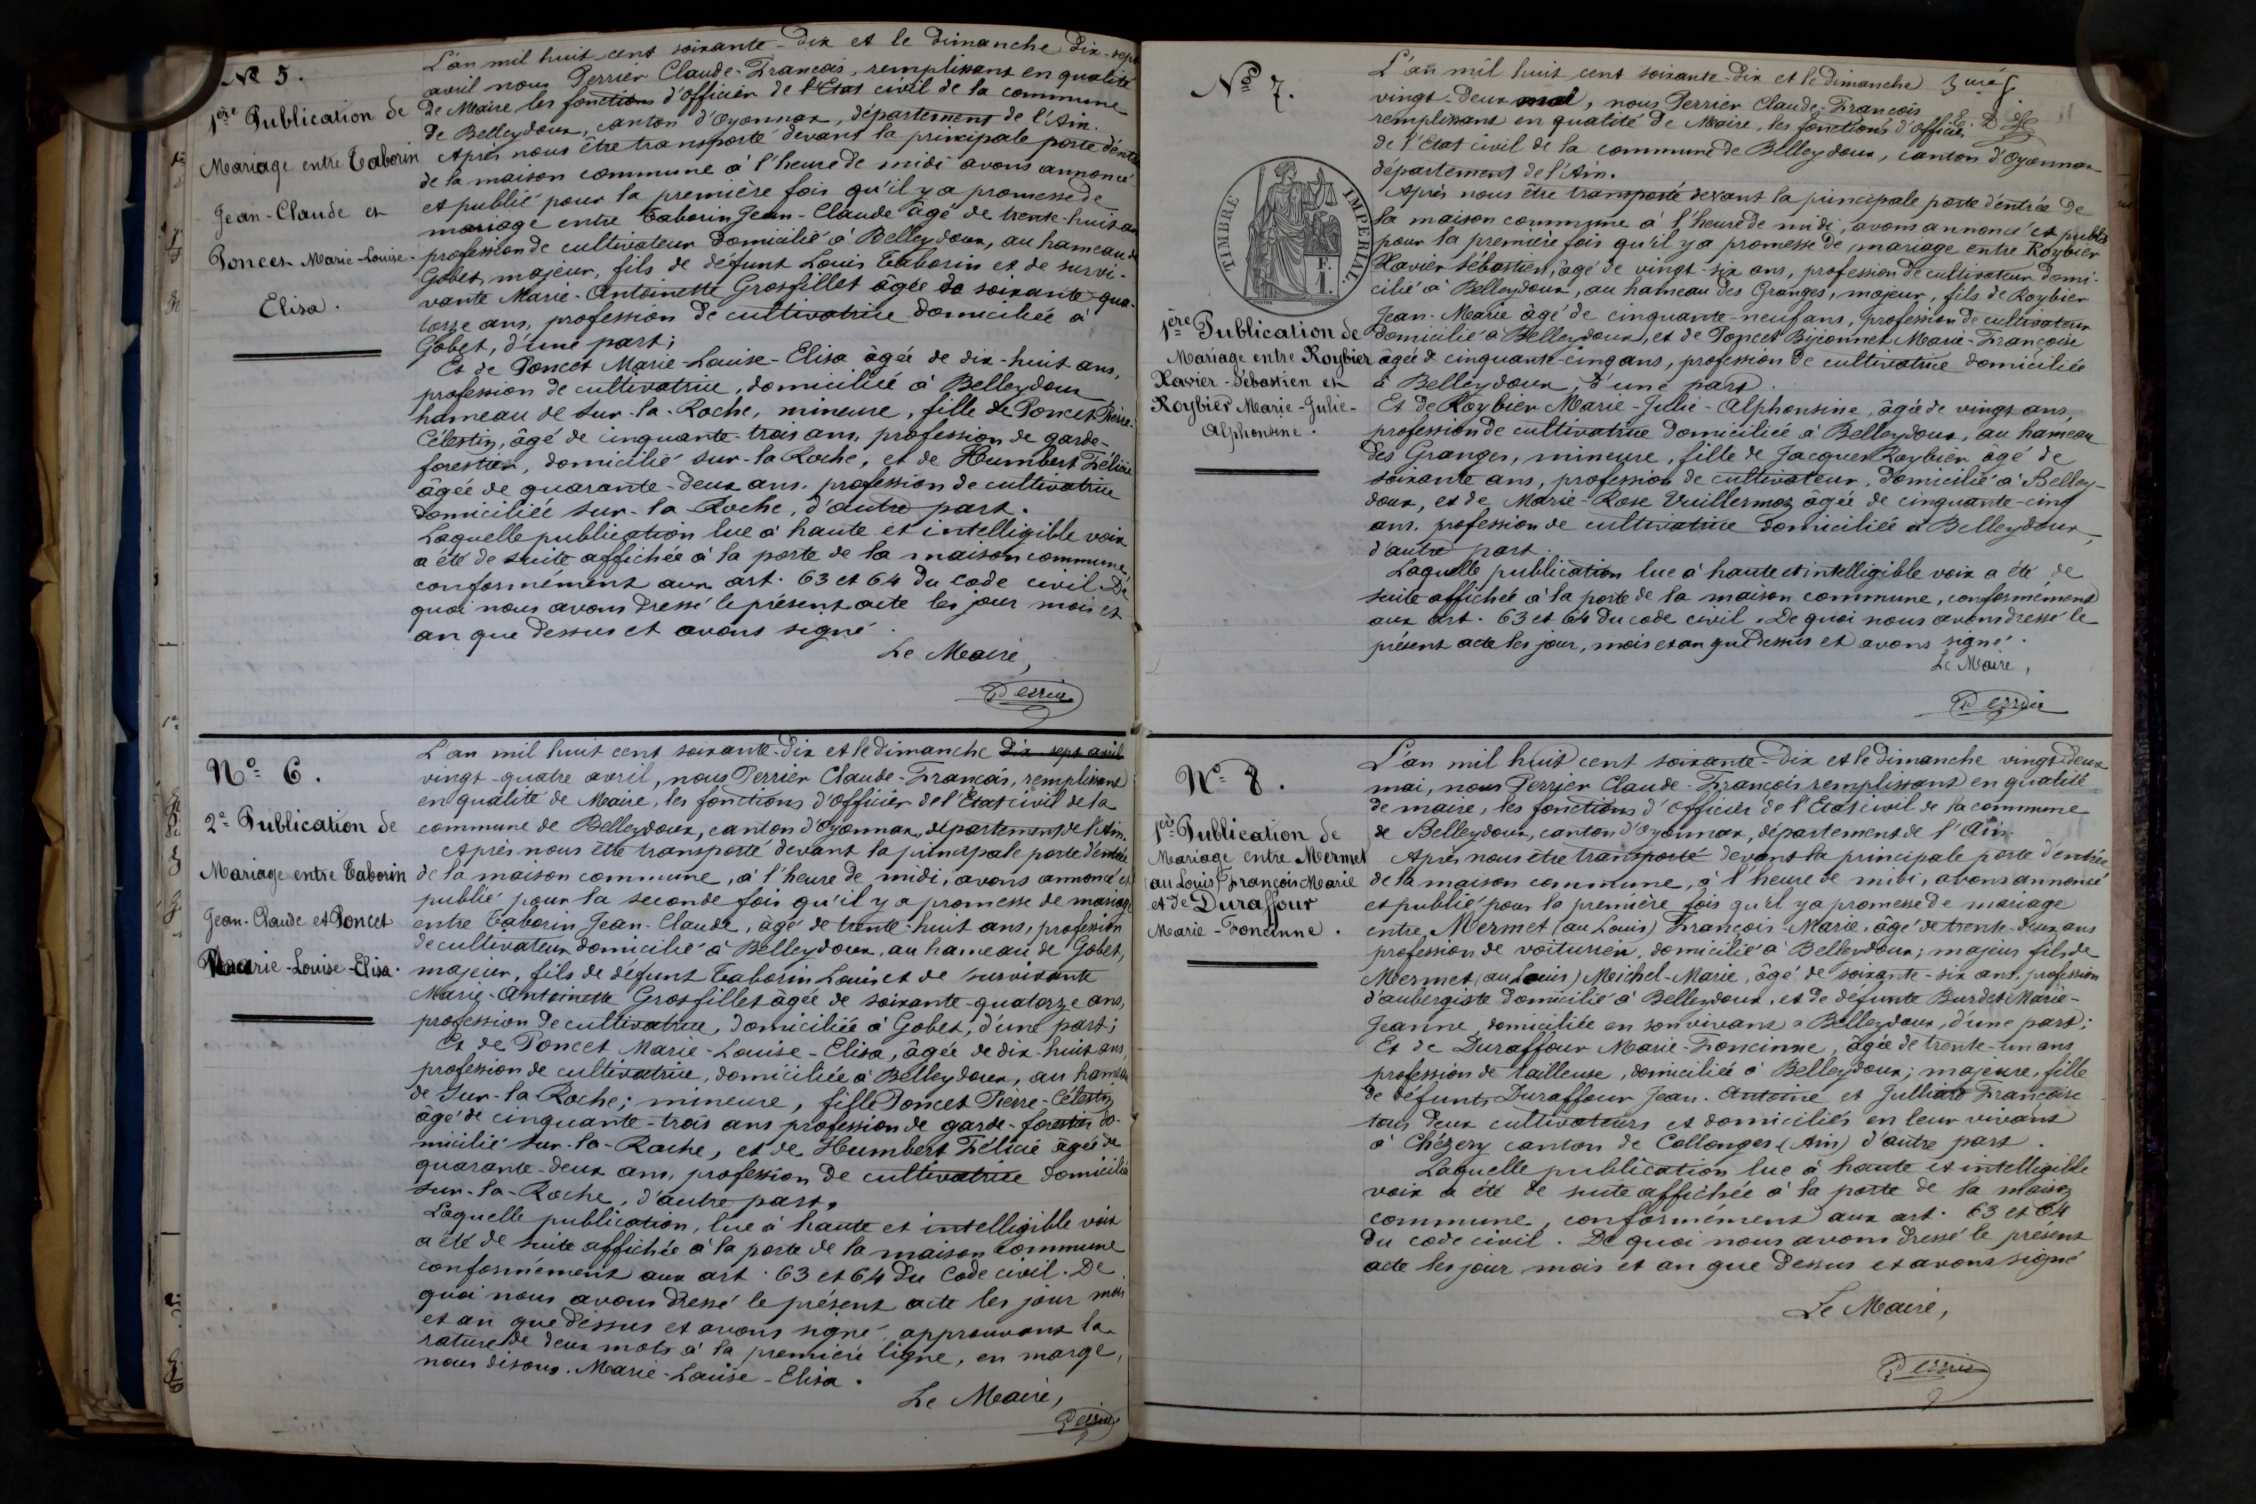 N° 5.
1ère Publication de
Mariage entre Taborin
Jean-Claude et
Poncet Marie-Louise-
Elisa.
L'an mil huit cent soixante-dix et le dimanche dix-sept
avril nous Perrier Claude-François, remplissant en qualité
de Maire les fonctions d'officier de l'Etat civil de la commune
de Belleydoux, canton d'Oyonnax, département de l'Ain.
Après nous être transporté devant la principale porte d'entrée
de la maison commune à l'heure de midi avons annoncé
et publié pour la première fois qu'il y a promesse de
mariage entre Taborin Jean-Claude âgé de trente-huit ans
profession de cultivateur domicilié à Belleydoux, au hameau de
Gobet, majeur, fils de défunt Louis Taborin et de survi-
vante Marie-Antoinette Grosfillet âgée de soixante-qua-
torze ans, profession de cultivatrice domiciliée à
Gobet, d'une part;
Et de Poncet Marie-Louise-Elisa âgée de dix-huit ans,
profession de cultivatrice, domiciliée à Belleydoux
hameau de sur-la-Roche, mineure, fille de Poncet Pierre-
Célestin, âgé de cinquante-trois ans, profession de garde-
forestier, domicilié sur-la Roche, et de Humbert Félicie
âgée de quarante-deux ans, profession de cultivatrice
domiciliée sur-la-Roche, d'autre part.
Laquelle publication lue à haute et intelligible voix
a été de suite affichée à la porte de la maison commune,
conformément aux art. 63 et 64 du code civil. De
quoi nous avons dressé le présent acte les jour mois et
an que dessus et avons signé.
Le Maire,
Perrier
N° 6.
2e Publication de
Mariage entre Taborin
Jean-Claude et Poncet
Marie-Louise-Elisa.
L'an mil huit cent soixante-dix et le dimanche dix-sept avril
vingt-quatre avril, nous Perrier Claude-François, remplissant
en qualité de Maire, les fonctions d'officier de l'Etat civil de la
commune de Belleydoux, canton d'Oyonnax, département de l'Ain.
Après nous être transporté devant la principale porte d'entrée
de la maison commune, à l'heure de midi, avons annoncé et
publié pour la seconde fois qu'il y a promesse de mariage
entre Taborin Jean-Claude, âgé de trente-huit ans, profession
de cultivateur domicilié à Belleydoux, au hameau de Gobet,
majeur, fils de défunt Taborin Louis et de survivante
Marie-Antoinette Grosfillet âgée de soixante-quatorze ans,
profession de cultivatrice, domiciliée à Gobet, d'une part;
Et de Poncet Marie-Louise-Elisa, âgée de dix-huit ans,
profession de cultivatrice, domiciliée à Belleydoux, au hameau
de Sur-la Roche; mineure, fille Poncet Pierre-Célestin
âgé de cinquante-trois ans profession de garde-forestier do-
micilié sur-la-Roche, et de Humbert Félicie âgée de
quarante-deux ans, profession de cultivatrice domiciliée
sur-la-Roche, d'autre part.
Laquelle publication, lue à haute et intelligible voix
a été de suite affichée à la porte de la maison commune
conformément aux art. 63 et 64 du Code civil. De
quoi nous avons dressé le présent acte les jour mois
et an que dessus et avons signé, approuvant la
rature de deux mots à la première ligne, en marge,
nous disons. Marie-Louise-Elisa.
Le Maire,
Perrier
N° 7.
TIMBRE IMPERIAL
1 F.
1ère Publication de
Mariage entre Roybier
Xavier-Sébastien et
Roybier Marie-Julie-
Alphonsine.
L'an mil huit cent soixante-dix et le dimanche
vingt-deux mai, nous Perrier Claude-François
remplissant en qualité de Maire, les fonctions d'officier
de l'Etat civil de la commune de Belleydoux, canton d'Oyonnax
département de l'Ain.
Après nous être transporté devant la principale porte d'entrée de
la maison commune à l'heure de midi, avons annoncé et publié
pour la première fois qu'il y a promesse de mariage entre Roybier
Xavier Sébastien, âgé de vingt-six ans, profession de cultivateur domi-
cilié à Belleydoux, au hameau des Granges, majeur, fils de Roybier
Jean-Marie âgé de cinquante-neuf ans, profession de cultivateur
domicilié à Belleydoux, et de Poncet Bijonnet Marie-Françoise
âgée de cinquante-cinq ans, profession de cultivatrice domiciliée
à Belleydoux, d'une part.
Et de Roybier Marie-Julie-Alphonsine, âgée de vingt ans,
profession de cultivatrice domiciliée à Belleydoux, au hameau
des Granges, mineure, fille de Jacques Roybier âgé de
soixante ans, profession de cultivateur, domicilié à Belley-
doux, et de Marie-Rose Vuillermoz âgée de cinquante-cinq
ans, profession de cultivatrice domiciliée à Belleydoux,
d'autre part.
Laquelle publication lue à haute et intelligible voix a été de
suite affichée à la porte de la maison commune, conformément
aux art. 63 et 64 du code civil. De quoi nous avons dressé le
présent acte les jour, mois et an que dessus et avons signé.
Le Maire,
Perrier
N° 8.
1ère Publication de
Mariage entre Mermet
(au Louis) François Marie
et de Duraffour
Marie-Foncinne.
L'an mil huit cent soixante-dix et le dimanche vingt-deux
mai, nous Perrier Claude-François remplissant en qualité
de maire, les fonctions d'officier de l'Etat civil de la commune
de Belleydoux, canton d'Oyonnax, département de l'Ain
Après nous être transporté devant la principale porte d'entrée
de la maison commune, à l'heure de midi, avons annoncé
et publié pour la première fois qu'il y a promesse de mariage
entre Mermet (au Louis) François-Marie, âgé de trente-deux ans
profession de voiturier, domicilié à Belleydoux; majeur fils de
Mermet (au Louis) Meichel-Marie, âgé de soixante-six ans, profession
d'aubergiste domicilié à Belleydoux, et de défunte Burdet Marie-
Jeanne, domiciliée en son vivant à Belleydoux, d'une part;
Et de Duraffour Marie-Foncinne, âgée de trente-un ans
profession de tailleuse, domiciliée à Belleydoux; majeure, fille
de défunts Duraffour Jean-Antoine et Julliard Françoise
tous deux cultivateurs et domiciliés en leur vivant
à Chézery canton de Collonges (Ain) d'autre part.
Laquelle publication lue à haute et intelligible
voix a été de suite affichée à la porte de la maison
commune, conformément aux art. 63 et 64
du code civil. De quoi nous avons dressé le présent
acte les jour mois et an que dessus et avons signé
Le Maire,
Perrier